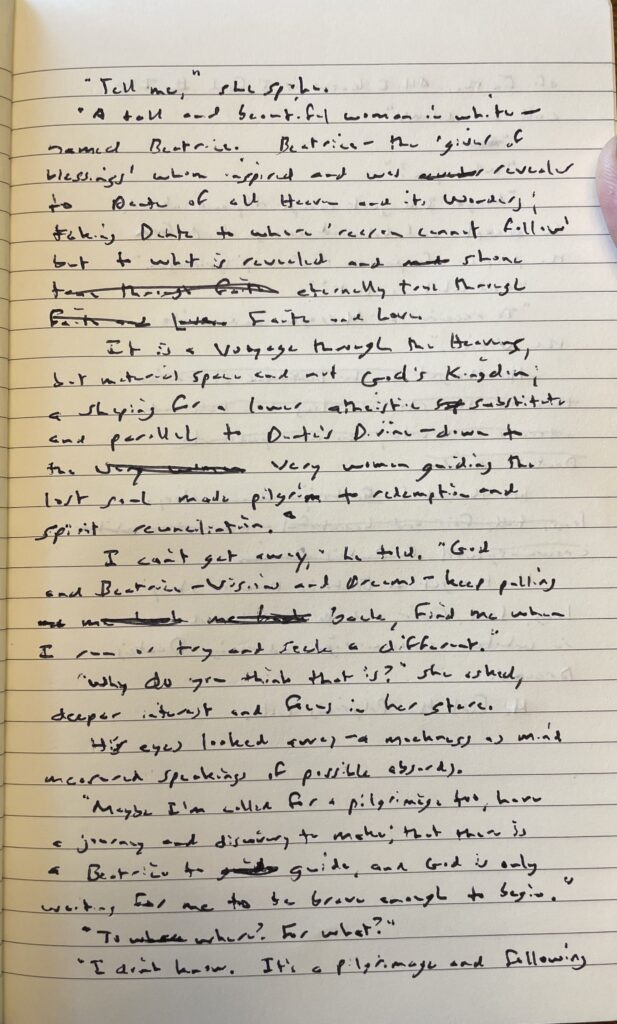 "Tell me," she spoke.
"A tall and beautiful woman in white—
named Beatrice. Beatrice – the 'giver of
blessings' whom inspired and was revealer
to Dante of all Heaven and its Wonders;
taking Dante to where 'reason cannot follow'
but to what is revealed and shone
true through Faith eternally true through
Faith and Love Faith and Love.
It is a Voyage through the Heavens,
but material space and not God's Kingdom;
a shaping for a lower atheistic substitute
and parallel to Dante's Divine – down to
the very woman very woman guiding the
lost soul made pilgrim to redemption and
spirit reconciliation."
I can't get away," he told. "God
and Beatrice – Visions and Dreams – keep pulling
me back me back back, find me when
I run or try and seek a different."
"Why do you think that is?" she asked,
deeper interest and focus in her stare.
His eyes looked away – a meekness as mind
measured speakings of possible absurds.
"Maybe I'm called for a pilgrimage too, have
a journey and discovery to make; that there is
a Beatrice to guide, and God is only
waiting for me to be brave enough to begin."
"To where? For what?"
"I don't know. It's a pilgrimage and following